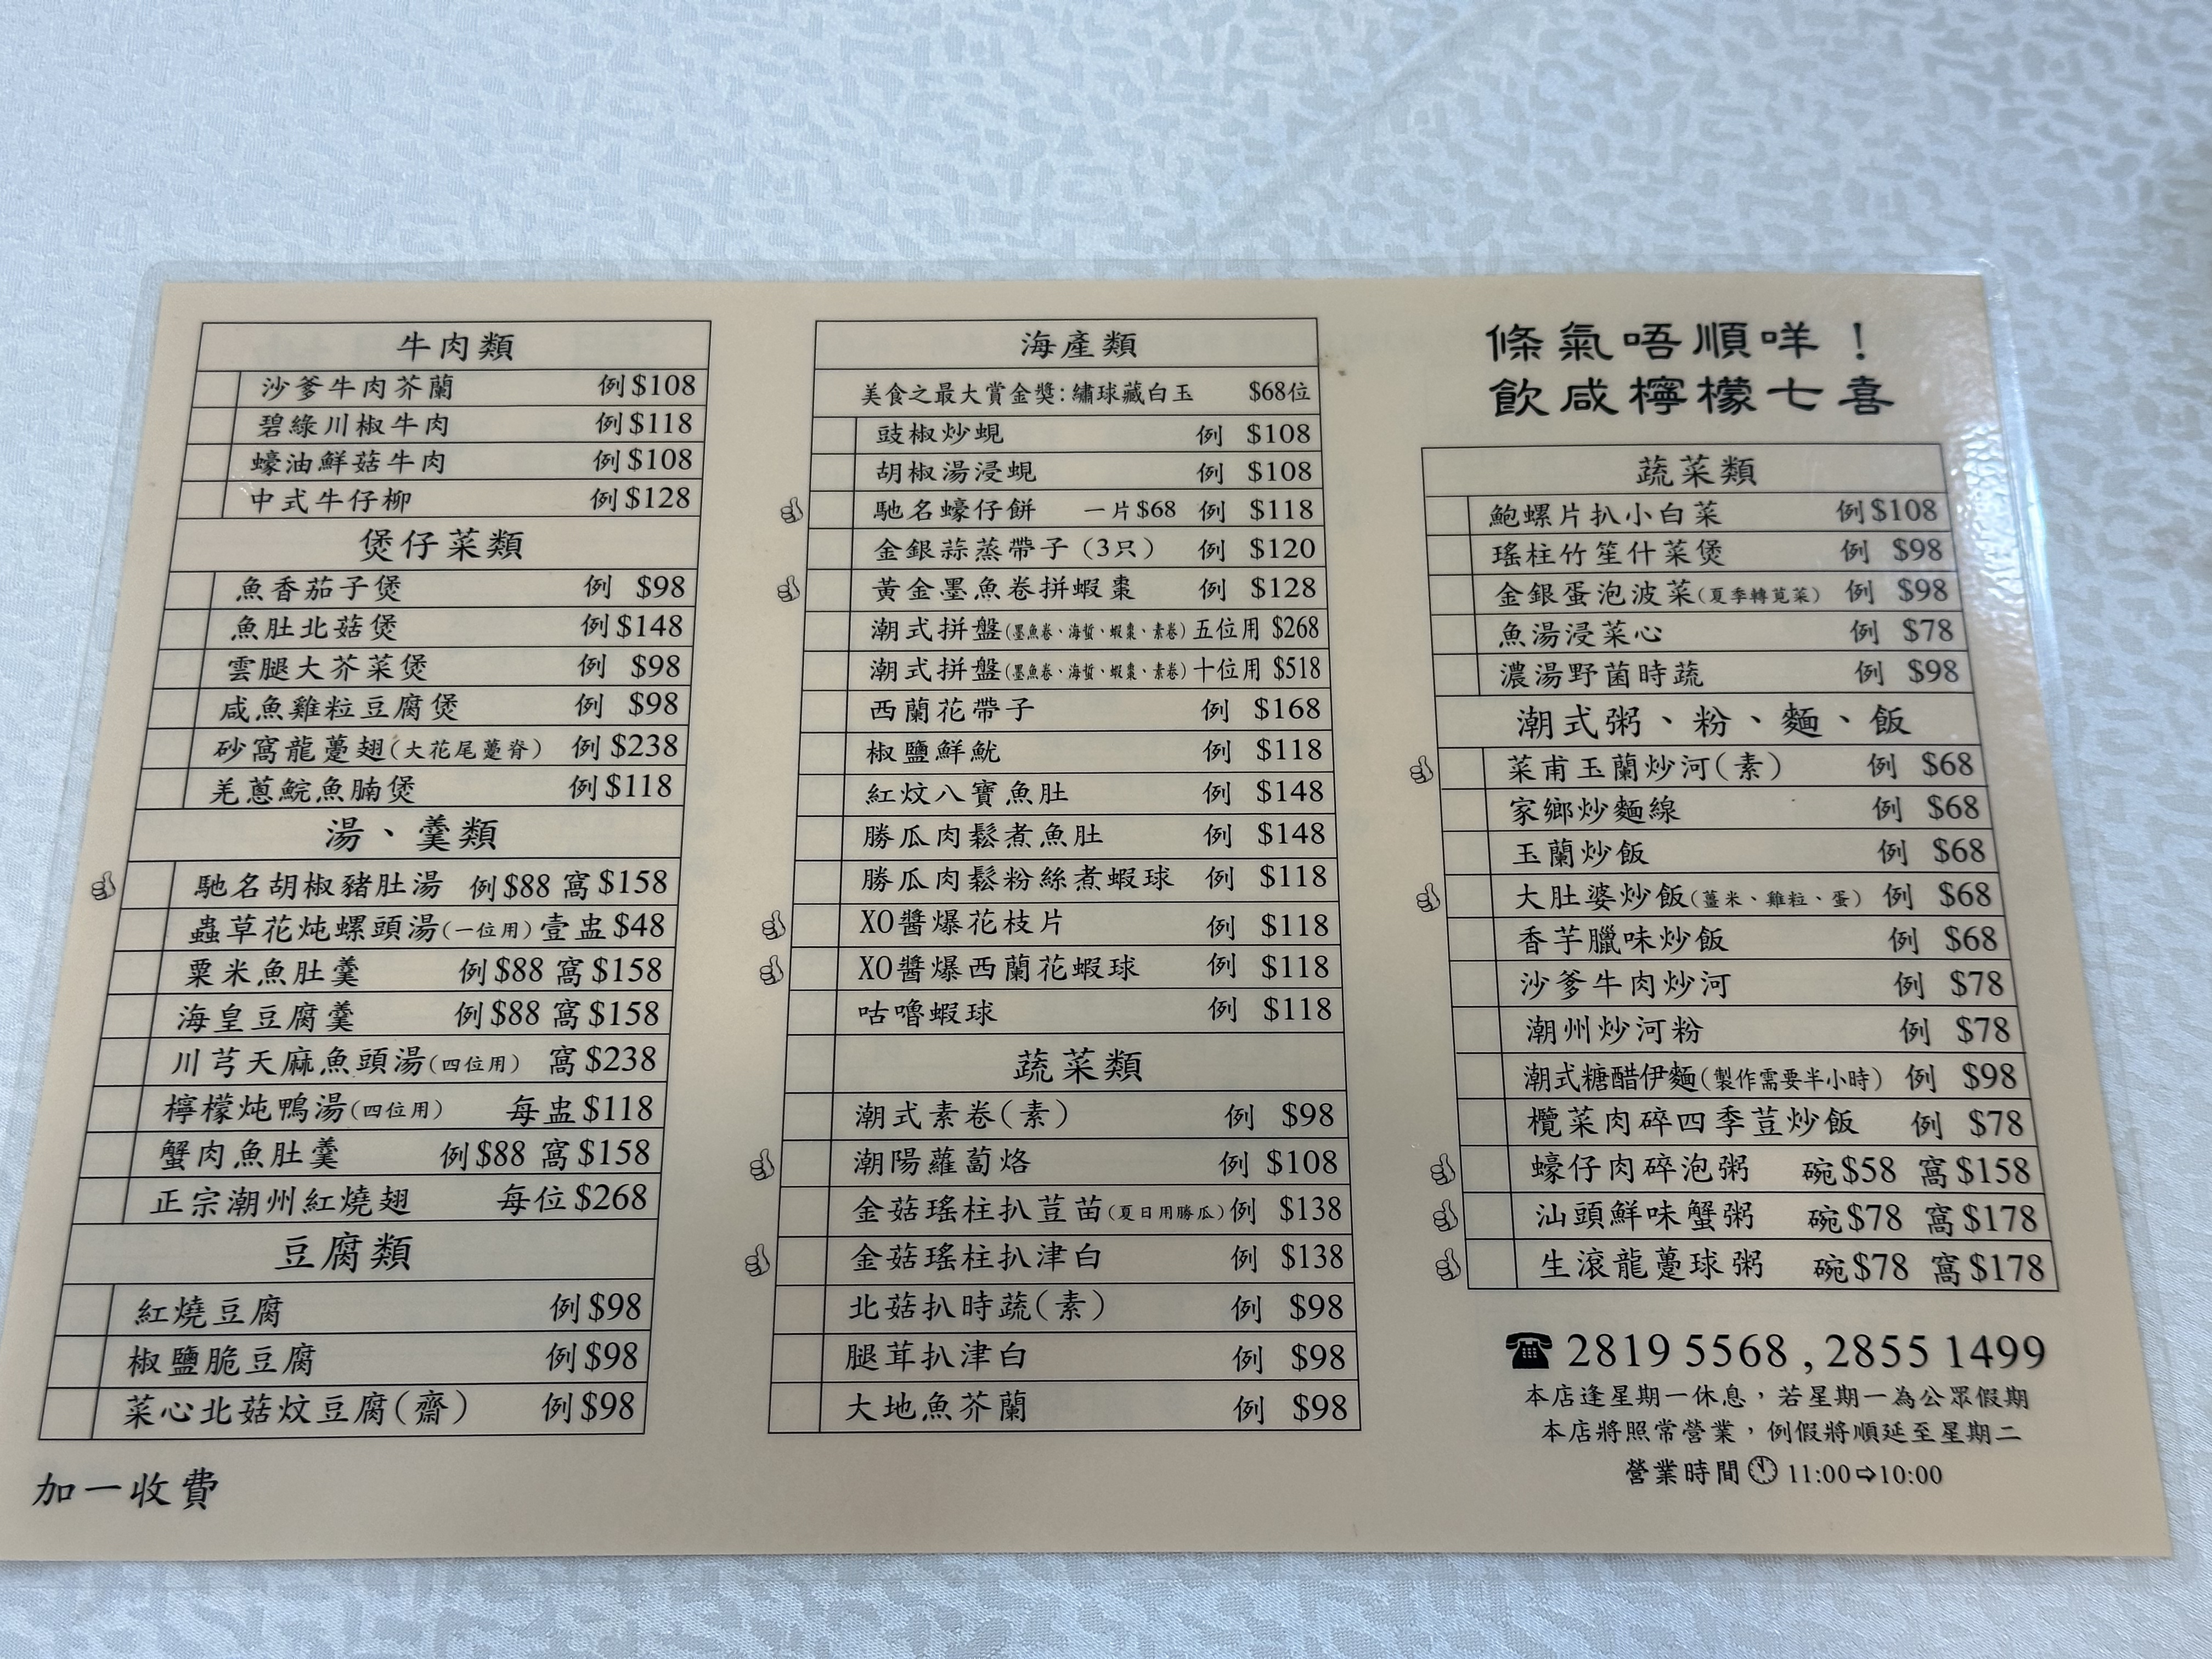 牛肉類
沙爹牛肉芥蘭 例$108
碧綠川椒牛肉 例$118
蠔油鮮菇牛肉 例$108
中式牛仔柳 例$128
煲仔菜類
魚香茄子煲 例 $98
魚肚北菇煲 例$148
雲腿大芥菜煲 例 $98
咸魚雞粒豆腐煲 例 $98
砂窩龍躉翅(大花尾躉脊) 例$238
羌蔥鯇魚腩煲 例$118
湯、羹類
馳名胡椒豬肚湯 例$88 窩$158
蟲草花炖螺頭湯(一位用) 壹盅$48
粟米魚肚羹 例$88 窩$158
海皇豆腐羹 例$88 窩$158
川芎天麻魚頭湯(四位用) 窩$238
檸檬炖鴨湯(四位用) 每盅$118
蟹肉魚肚羹 例$88 窩$158
正宗潮州紅燒翅 每位$268
豆腐類
紅燒豆腐 例$98
椒鹽脆豆腐 例$98
菜心北菇炆豆腐(齋) 例$98
加一收費
海產類
美食之最大賞金獎:繡球藏白玉 $68位
豉椒炒蜆 例 $108
胡椒湯浸蜆 例 $108
馳名蠔仔餅 一片$68 例 $118
金銀蒜蒸帶子(3只) 例 $120
黃金墨魚卷拼蝦棗 例 $128
潮式拼盤(墨魚卷、海蜇、蝦棗、素卷) 五位用 $268
潮式拼盤(墨魚卷、海蜇、蝦棗、素卷) 十位用 $518
西蘭花帶子 例 $168
椒鹽鮮魷 例 $118
紅炆八寶魚肚 例 $148
勝瓜肉鬆煮魚肚 例 $148
勝瓜肉鬆粉絲煮蝦球 例 $118
XO醬爆花枝片 例 $118
XO醬爆西蘭花蝦球 例 $118
咕嚕蝦球 例 $118
蔬菜類
潮式素卷(素) 例 $98
潮陽蘿蔔烙 例 $108
金菇瑤柱扒荳苗(夏日用勝瓜) 例 $138
金菇瑤柱扒津白 例 $138
北菇扒時蔬(素) 例 $98
腿茸扒津白 例 $98
大地魚芥蘭 例 $98
條氣唔順咩！
飲咸檸檬七喜
蔬菜類
鮑螺片扒小白菜 例$108
瑤柱竹笙什菜煲 例 $98
金銀蛋泡波菜(夏季轉莧菜) 例 $98
魚湯浸菜心 例 $78
濃湯野菌時蔬 例 $98
潮式粥、粉、麵、飯
菜甫玉蘭炒河(素) 例 $68
家鄉炒麵線 例 $68
玉蘭炒飯 例 $68
大肚婆炒飯(薑米、雞粒、蛋) 例 $68
香芋臘味炒飯 例 $68
沙爹牛肉炒河 例 $78
潮州炒河粉 例 $78
潮式糖醋伊麵(製作需要半小時) 例 $98
欖菜肉碎四季荳炒飯 例 $78
蠔仔肉碎泡粥 碗$58 窩$158
汕頭鮮味蟹粥 碗$78 窩$178
生滾龍躉球粥 碗$78 窩$178
☎ 2819 5568 , 2855 1499
本店逢星期一休息，若星期一為公眾假期
本店將照常營業，例假將順延至星期二
營業時間 11:00⇨10:00